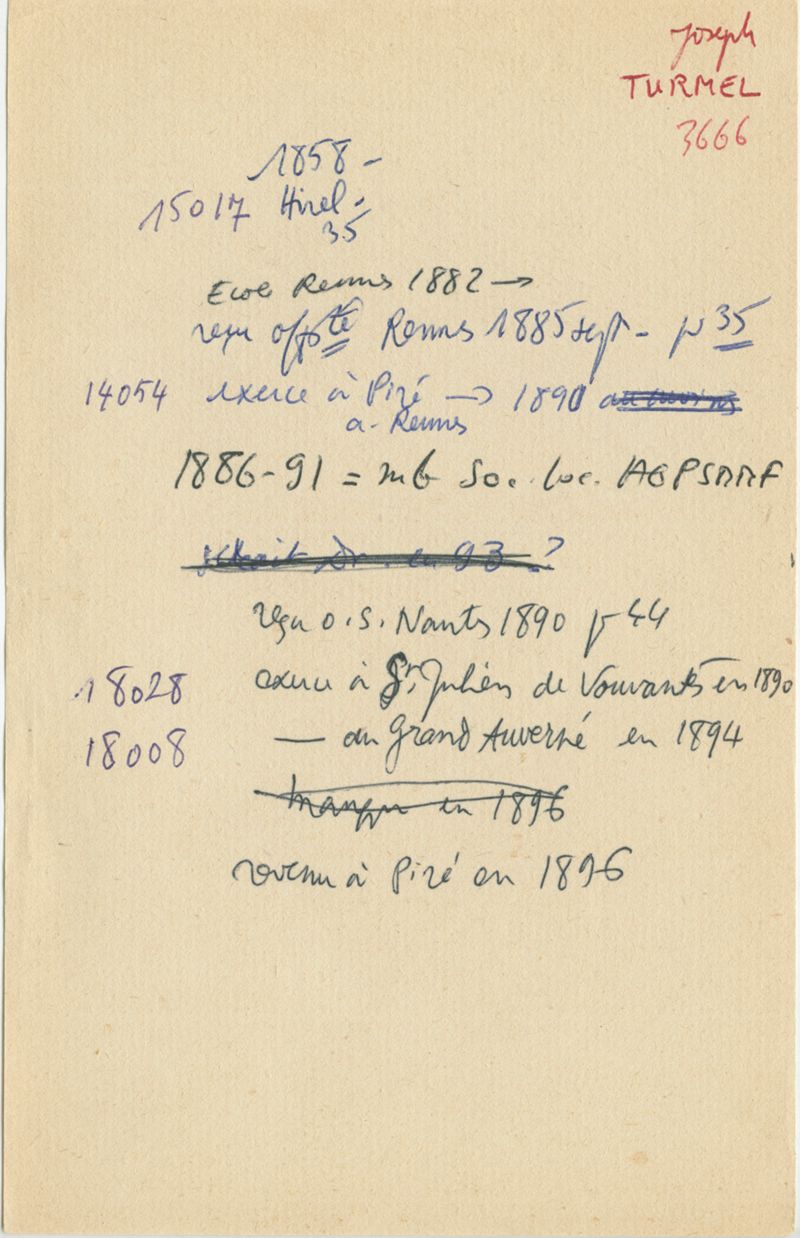 Joseph
TURMEL
3666
1858 -
15017 Hirel -
35
Ecole Rennes 1882 →
reçu off de Sté Rennes 1885 sept - pr 35
14054 exerce à Piré → 1890 au moins
a - Rennes
1886-91 = mb Soc. loc. AGPSDMF
en 93 - ?
reçu o.s. Nantes 1890 pr 44
18028 exerce à St Julien de Vouvantes en 1890
18008 — au Grand Auverné en 1894
Manque en 1896
revenu à Piré en 1896